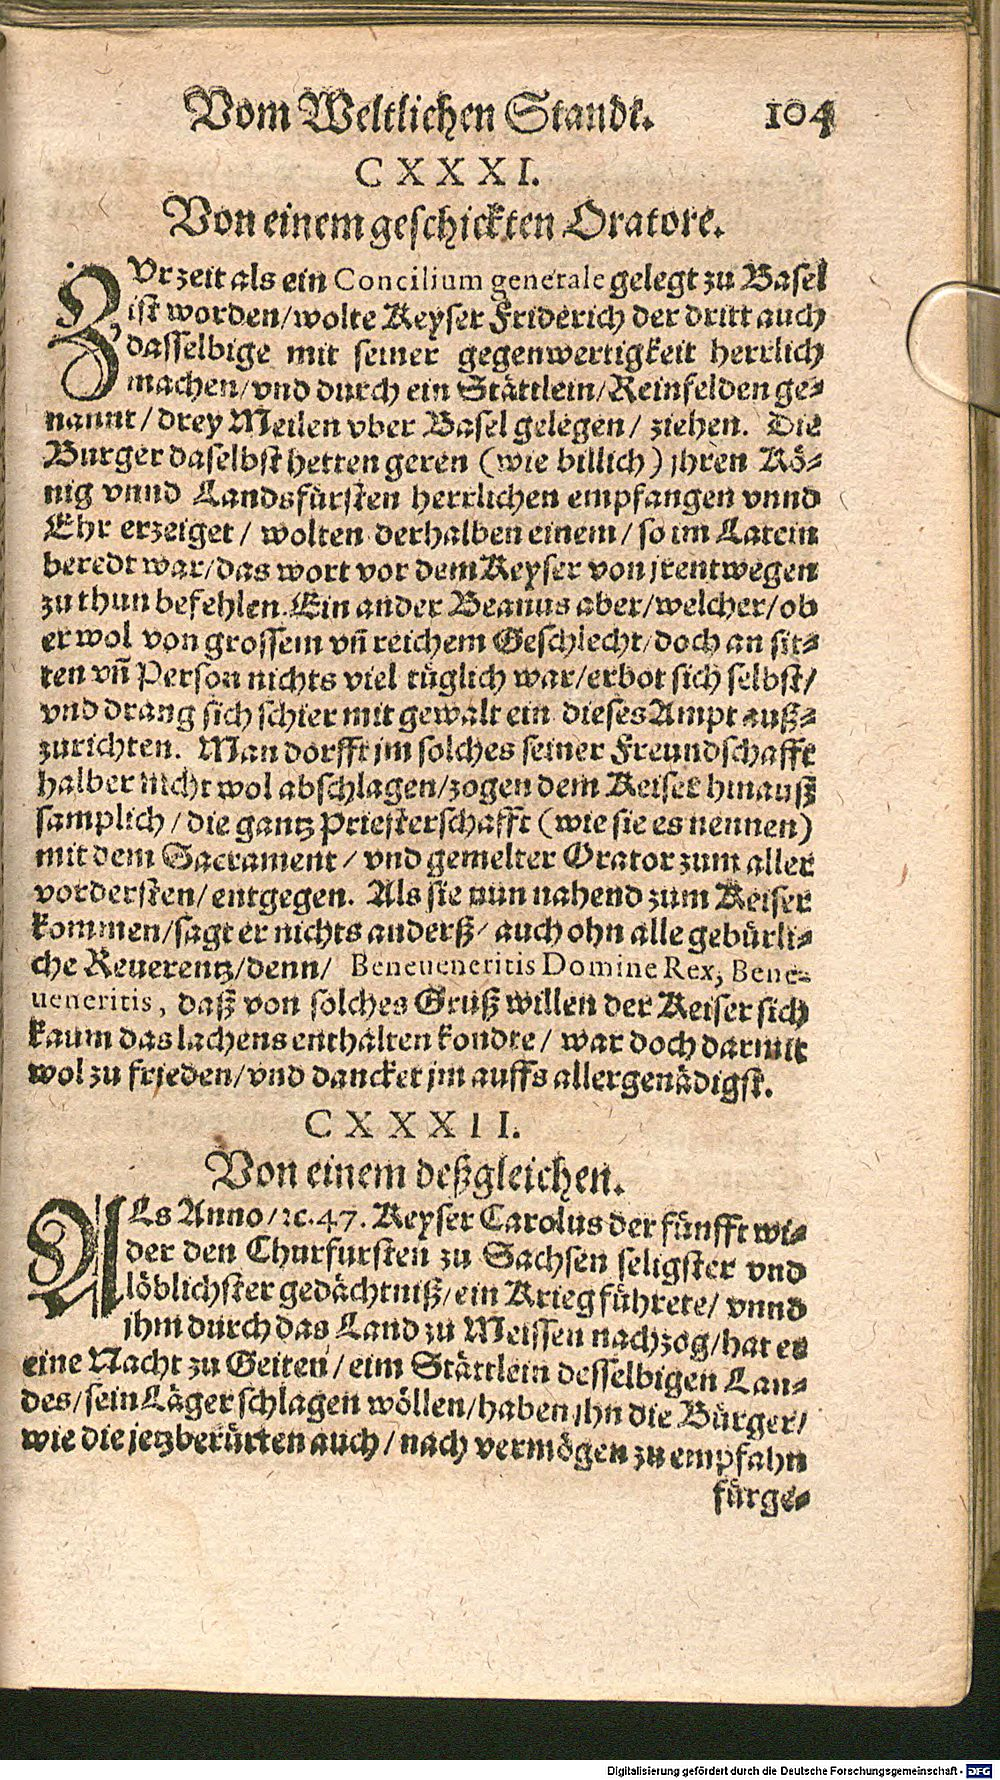 Vom Weltlichen Stande. 104
CXXXI.
Von einem geschickten Oratore.
ZVrzeit als ein Concilium generale gelegt zu Basel
ist worden/wolte Keyser Friderich der dritt auch
dasselbige mit seiner gegenwertigkeit herrlich
machen/vnd durch ein Stättlein/Reinfelden ge-
nannt/drey Meilen vber Basel gelegen/ ziehen. Die
Burger daselbst hetten geren (wie billich) jhren Kö-
nig vnnd Landsfürsten herrlichen empfangen vnnd
Ehr erzeiget/ wolten derhalben einem/ so im Latein
beredt war/das wort vor dem Keyser von jrentwegen
zu thun befehlen. Ein ander Beanus aber/welcher/ob
er wol von grossem vñ reichem Geschlecht/doch an sit-
ten vñ Person nichts viel tüglich war/erbot sich selbst/
vnd drang sich schier mit gewalt ein dieses Ampt auß-
zurichten. Man dorfft jm solches seiner Freundschafft
halber nicht wol abschlagen/zogen dem Keiser hinauß
samplich/die gantz Priesterschafft (wie sie es nennen)
mit dem Sacrament/ vnd gemelter Orator zum aller
vordersten/ entgegen. Als sie nun nahend zum Keiser
kommen/sagt er nichts anderß/ auch ohn alle gebürli-
che Reuerentz/denn/ Beneueneritis Domine Rex, Bene-
ueneritis, daß von solches Gruß willen der Keiser sich
kaum das lachens enthalten kondte/ war doch darmit
wol zu frieden/vnd dancket jm auffs allergenädigst.
CXXXII.
Von einem deßgleichen.
ALs Anno/ꝛc.47. Keyser Carolus der fünfft wi-
der den Churfursten zu Sachsen seligster vnd
löblichster gedächtniß/ein Krieg führete/ vnnd
jhm durch das Land zu Meissen nachzog/hat er
eine Nacht zu Geiten/ eim Stättlein desselbigen Lan-
des/sein Läger schlagen wöllen/haben jhn die Bürger/
wie die jetzberürten auch/ nach vermögen zu empfahn
fürge-
Digitalisierung gefördert durch die Deutsche Forschungsgemeinschaft - DFG